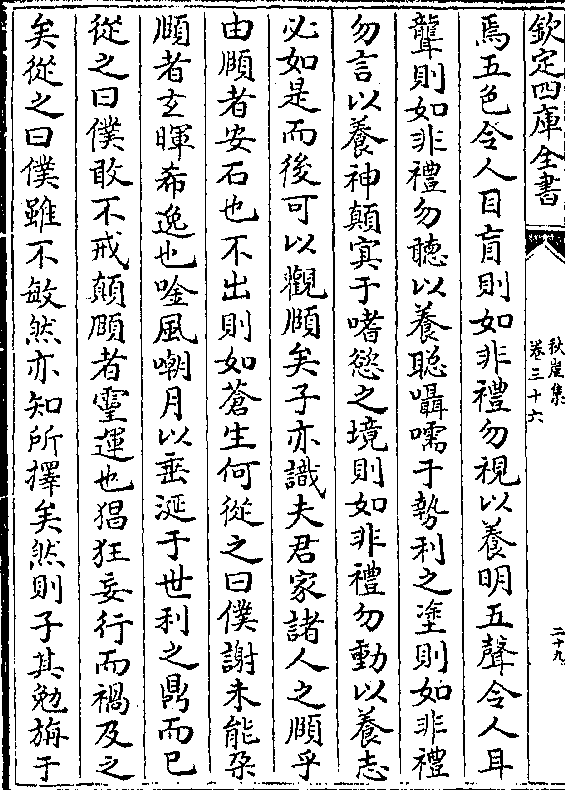 欽定四庫全書
秋崖集
卷三十六
二十九
焉五色令人目盲則如非禮勿視以養明五聲令人耳
聾則如非禮勿聽以養聰囁嚅于勢利之塗則如非禮
勿言以養神顛㝠于嗜慾之境則如非禮勿動以養志
必如是而後可以觀頤矣子亦識夫君家諸人之頤乎
由頤者安石也不出則如蒼生何從之曰僕謝未能朶
頤者玄暉希逸也唫風嘲月以垂涎于世利之鼎而已
從之曰僕敢不戒顛頤者靈運也猖狂妄行而禍及之
矣從之曰僕雖不敏然亦知所擇矣然則子其勉旃于